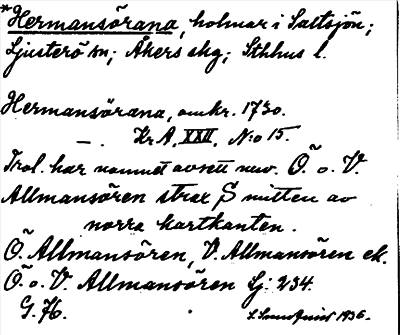 *Hermansörana, holmar i Saltsjön;
Ljusterö sn; Åkers skg; Sthlms l.
Hermansörana, omkr. 1730.
—. Kr A, XXII, N:o 15.
Trol. har namnet avsett nuv. Ö. o. V.
Allmansören strax S mitten av
norra kartkanten.
Ö. Allmansören, V. Allmansören ek.
Ö. o. V. Allmansören Lj: 234.
G. 76.
1936.